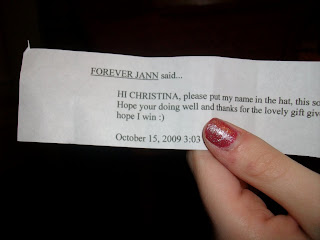 FOREVER JANN said...
HI CHRISTINA, please put my name in the hat, this so
Hope your doing well and thanks for the lovely gift give
hope I win :)
October 15, 2009 3:03